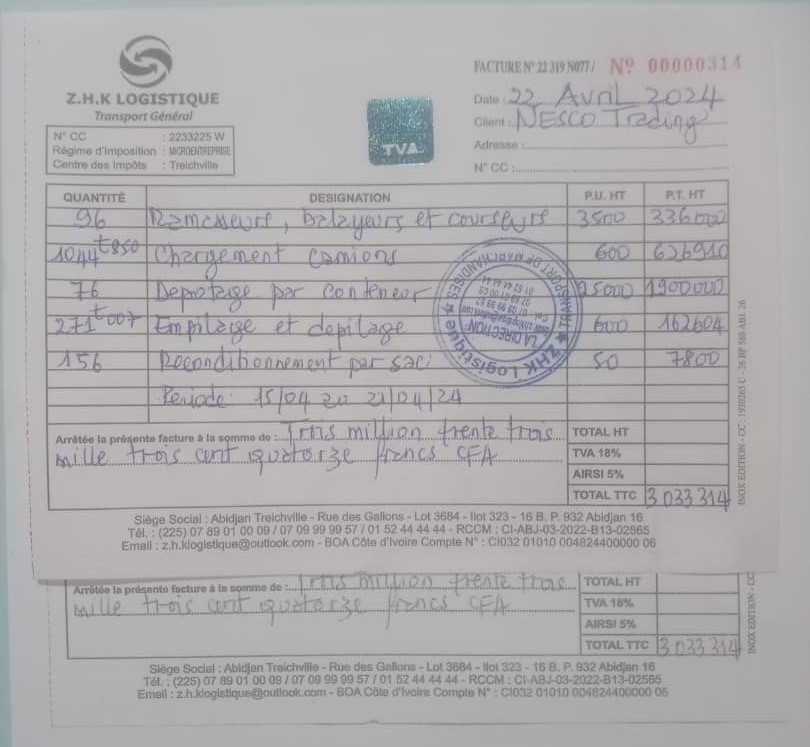 Z.H.K LOGISTIQUE
Transport Général
N° CC : 2233225 W
Régime d'Imposition : MICROENTREPRISE
Centre des Impôts : Treichville
TVA
FACTURE N° 22 319 N077 / Nº 00000314
Date : 22 Avril 2024
Client : NESCO Trading
Adresse :
N° CC :
QUANTITÉ DESIGNATION P.U. HT P.T. HT
96 Ramasseurs, balayeurs et courseurs 3500 336000
1044 t850 Chargement camions 600 626910
76 Depotage par conteneur 25000 1900000
271 t007 Empilage et depilage 600 162604
156 Reconditionnement par sac 50 7800
Periode: 15/04 au 21/04/24
ZHK Logistique
LA DIRECTION
TRANSPORT DE MARCHANDISES
Arrêtée la présente facture à la somme de : Trois million trente trois
mille trois cent quatorze francs CFA
TOTAL HT
TVA 18%
AIRSI 5%
TOTAL TTC 3 033 314
Siège Social : Abidjan Treichville - Rue des Galions - Lot 3684 - Ilot 323 - 16 B. P. 932 Abidjan 16
Tél. : (225) 07 89 01 00 09 / 07 09 99 99 57 / 01 52 44 44 44 - RCCM : CI-ABJ-03-2022-B13-02565
Email : z.h.klogistique@outlook.com - BOA Côte d'Ivoire Compte N° : CI032 01010 004824400000 06
INOX EDITION - CC : 1930265 C - 26 BP 588 ABJ. 26
Arrêtée la présente facture à la somme de : Trois million trente trois
mille trois cent quatorze francs CFA
TOTAL HT
TVA 18%
AIRSI 5%
TOTAL TTC 3 033 314
INOX EDITION - CC
Siège Social : Abidjan Treichville - Rue des Galions - Lot 3684 - Ilot 323 - 16 B. P. 932 Abidjan 16
Tél. : (225) 07 89 01 00 09 / 07 09 99 99 57 / 01 52 44 44 44 - RCCM : CI-ABJ-03-2022-B13-02565
Email : z.h.klogistique@outlook.com - BOA Côte d'Ivoire Compte N° : CI032 01010 004824400000 06